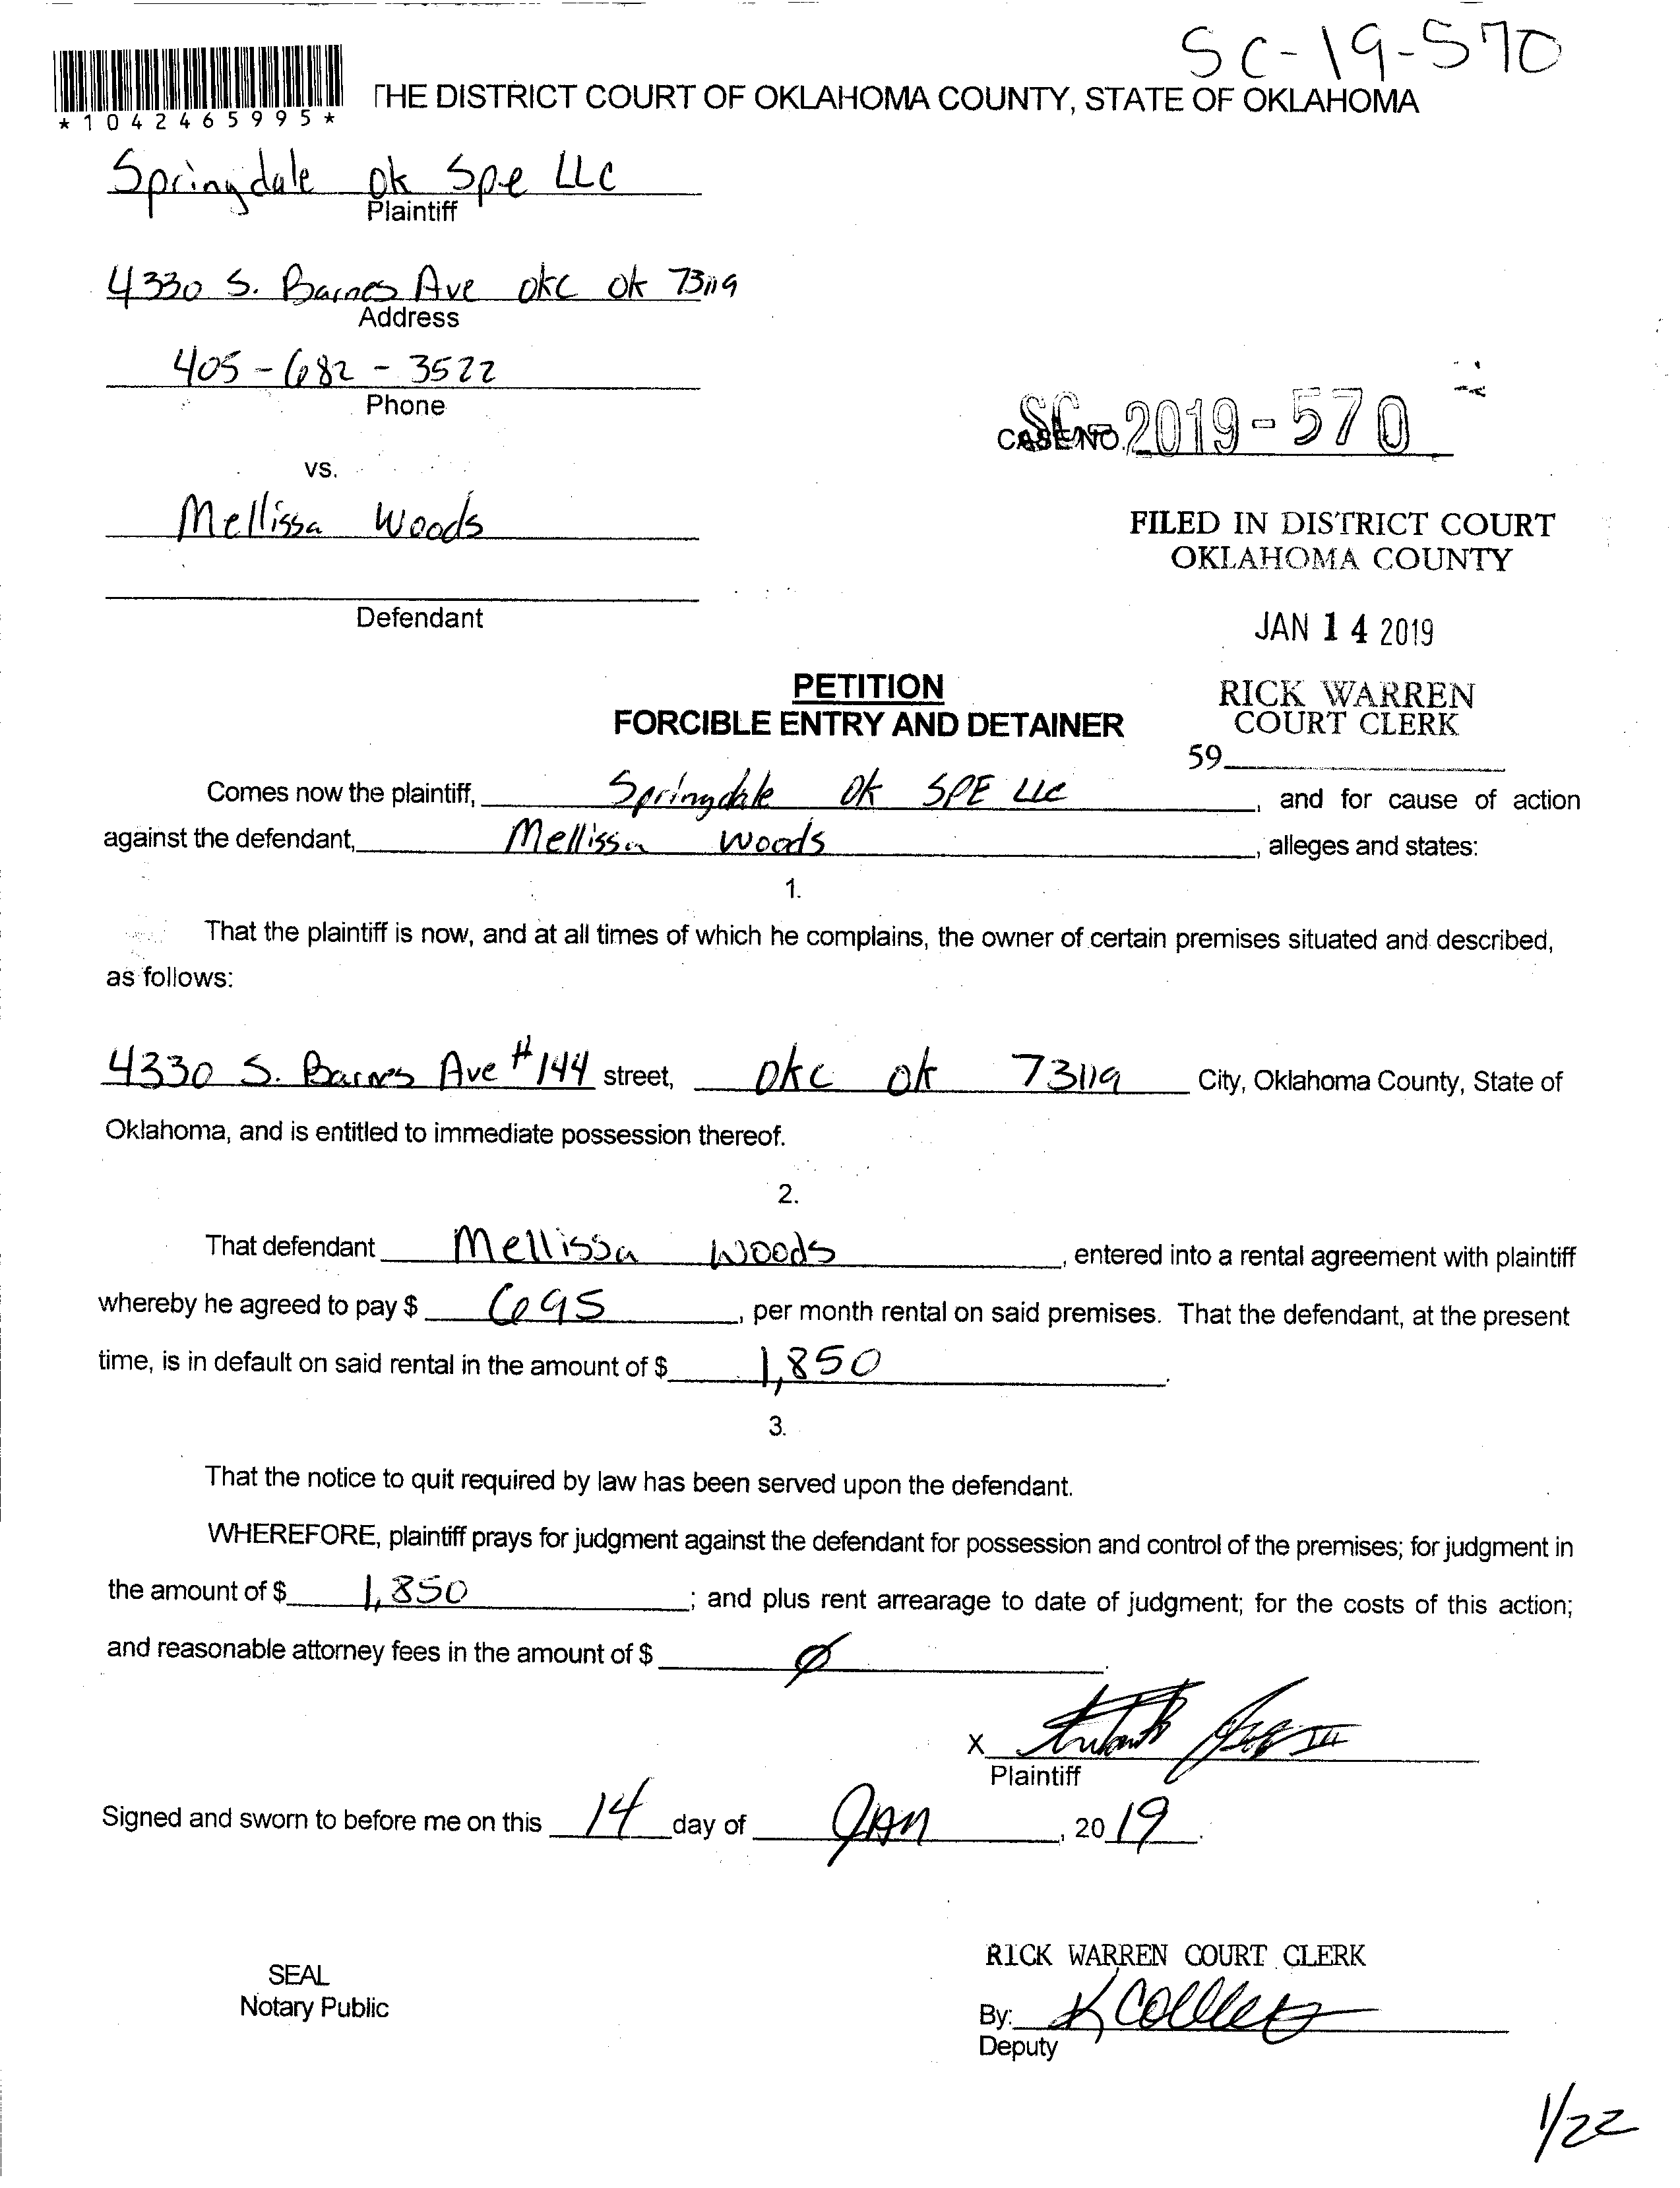 SC-19-570
*1042465995*
THE DISTRICT COURT OF OKLAHOMA COUNTY, STATE OF OKLAHOMA
Springdale ok Spe LLC
Plaintiff
4330 S. Barnes Ave okc ok 73119
Address
405-682-3522
Phone
SC-2019-570
CASE NO.
vs.
Mellissa Woods
FILED IN DISTRICT COURT
OKLAHOMA COUNTY
Defendant
JAN 14 2019
PETITION
FORCIBLE ENTRY AND DETAINER
RICK WARREN
COURT CLERK
59
Comes now the plaintiff, Springdale Ok SPE LLC, and for cause of action
against the defendant, Mellissa Woods, alleges and states:
1.
That the plaintiff is now, and at all times of which he complains, the owner of certain premises situated and described,
as follows:
4330 S. Barnes Ave #144 street, okc ok 73119 City, Oklahoma County, State of
Oklahoma, and is entitled to immediate possession thereof.
2.
That defendant Mellissa Woods, entered into a rental agreement with plaintiff
whereby he agreed to pay $ 695, per month rental on said premises. That the defendant, at the present
time, is in default on said rental in the amount of $ 1,850.
3.
That the notice to quit required by law has been served upon the defendant.
WHEREFORE, plaintiff prays for judgment against the defendant for possession and control of the premises; for judgment in
the amount of $ 1,850; and plus rent arrearage to date of judgment; for the costs of this action;
and reasonable attorney fees in the amount of $ Ø.
X
Plaintiff
Signed and sworn to before me on this 14 day of JAN, 2019.
RICK WARREN COURT CLERK
SEAL
Notary Public
By:
Deputy
1/22